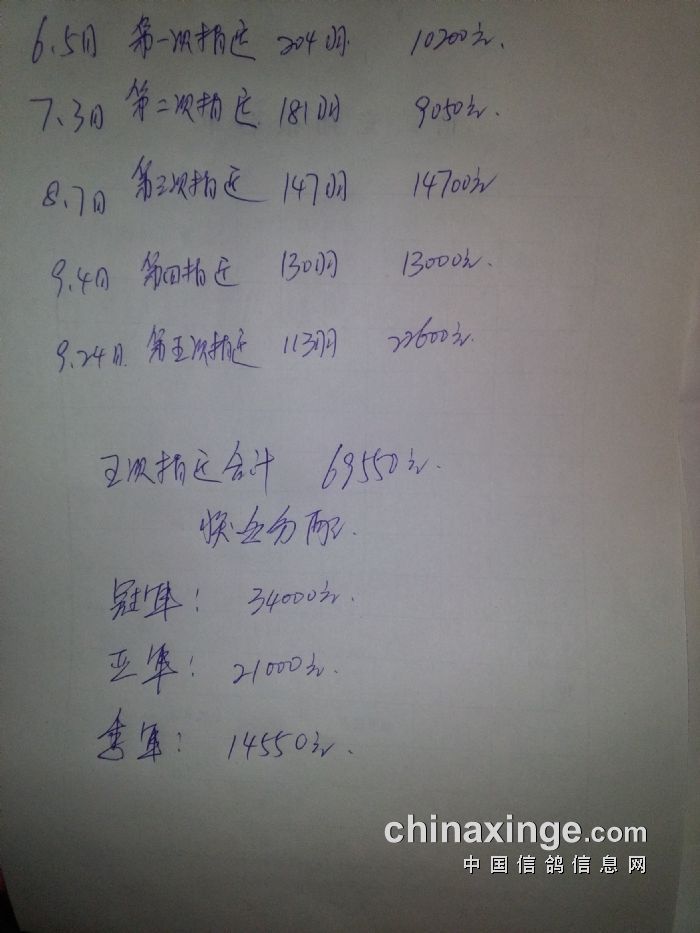 6.5日 第一次指定 204羽. 10200元.
7.3日 第二次指定 181羽 9050元.
8.7日 第三次指定 147羽 14700元
9.4日 第四指定 130羽 13000元.
9.24日. 第五次指定 113羽 22600元.
五次指定合计 69550元.
奖金分配.
冠军: 34000元.
亚军: 21000元.
季军: 14550元.
chinaxinge.com
中国信鸽信息网